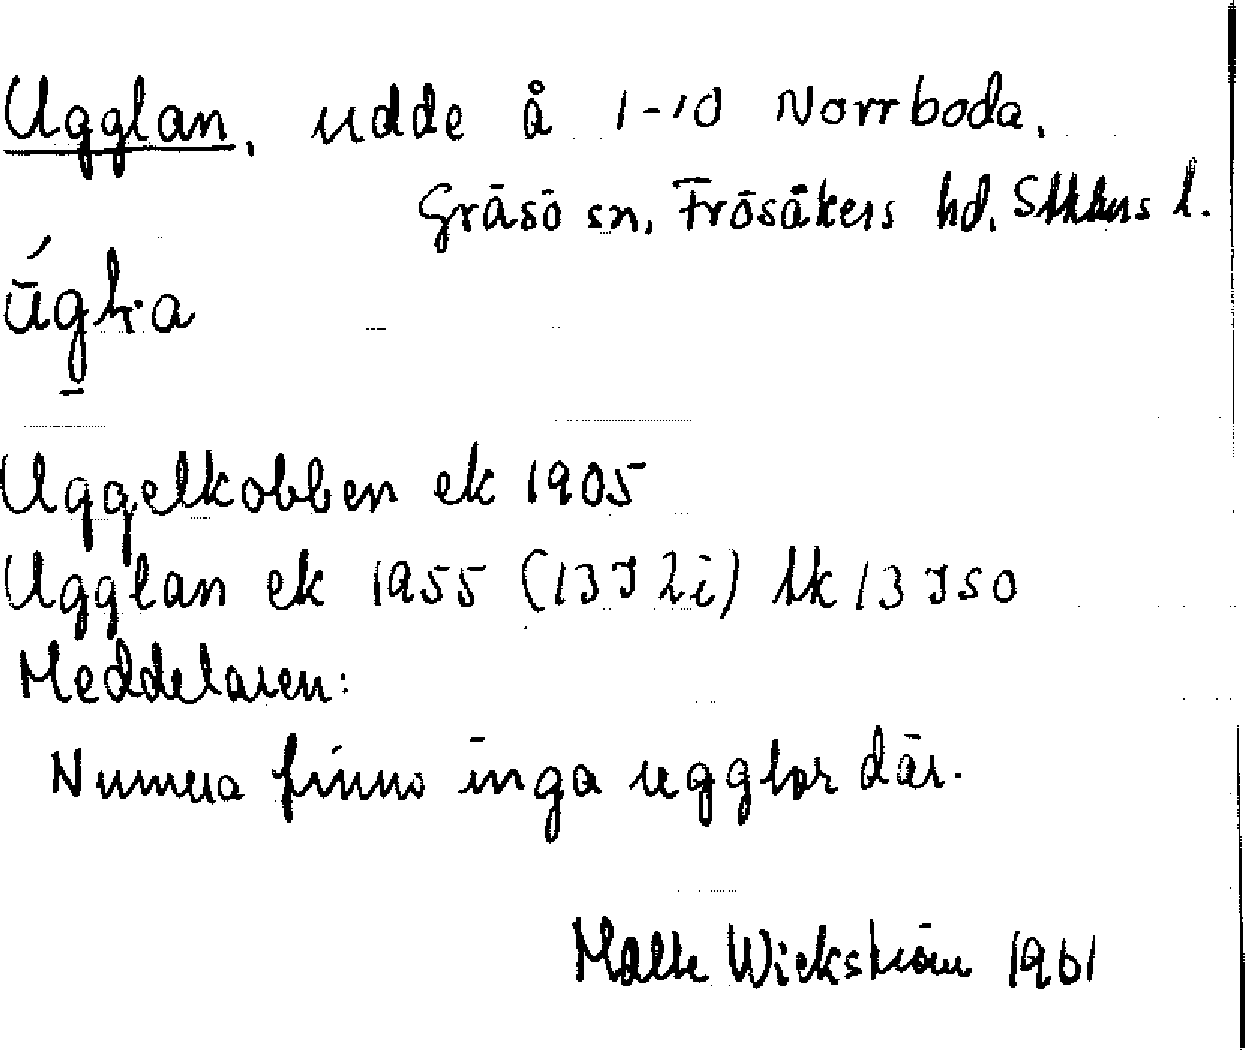 Ugglan, udde å 1-10 Norrboda,
Gräsö sn, Frösåkers hd, Sthlms l.
Uggelkobben ek 1905
Ugglan ek 1955 (13J 2i) tk 13 J S O
Meddelaren:
Numera finns inga ugglor där.
Malte Wickström 1961